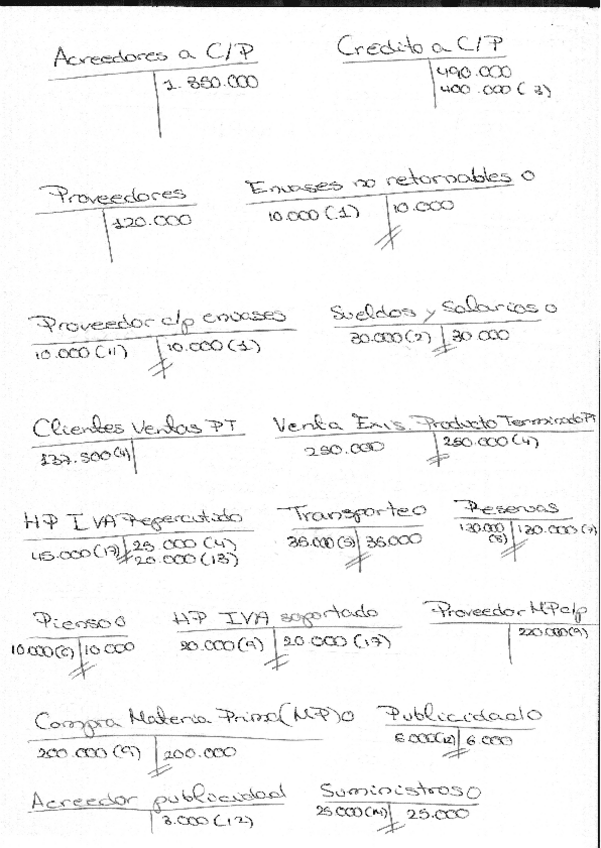 Acreedores a C/P Credito a C/P
1.850.000 490.000
400.000 (3)
Proveedores Envases no retornables o
120.000 10.000 (1) 10.000
Proveedor c/p envases Sueldos y Salarios o
10.000 (11) 10.000 (1) 30.000 (2) 30.000
Clientes Ventas PT Venta Exis. Producto Terminado PT
137.500 (4) 250.000 250.000 (4)
HP IVA Repercutido Transporte o Reservas
45.000 (17) 25.000 (4) 35.000 (5) 35.000 130.000 (8) 130.000 (7)
20.000 (13)
Pienso o HP IVA soportado Proveedor MP c/p
10.000 (6) 10.000 20.000 (9) 20.000 (17) 220.000 (9)
Compra Materia Prima (MP) o Publicidad o
200.000 (9) 200.000 6.000 (12) 6.000
Acreedor publicidad Suministros o
3.000 (12) 25.000 (14) 25.000